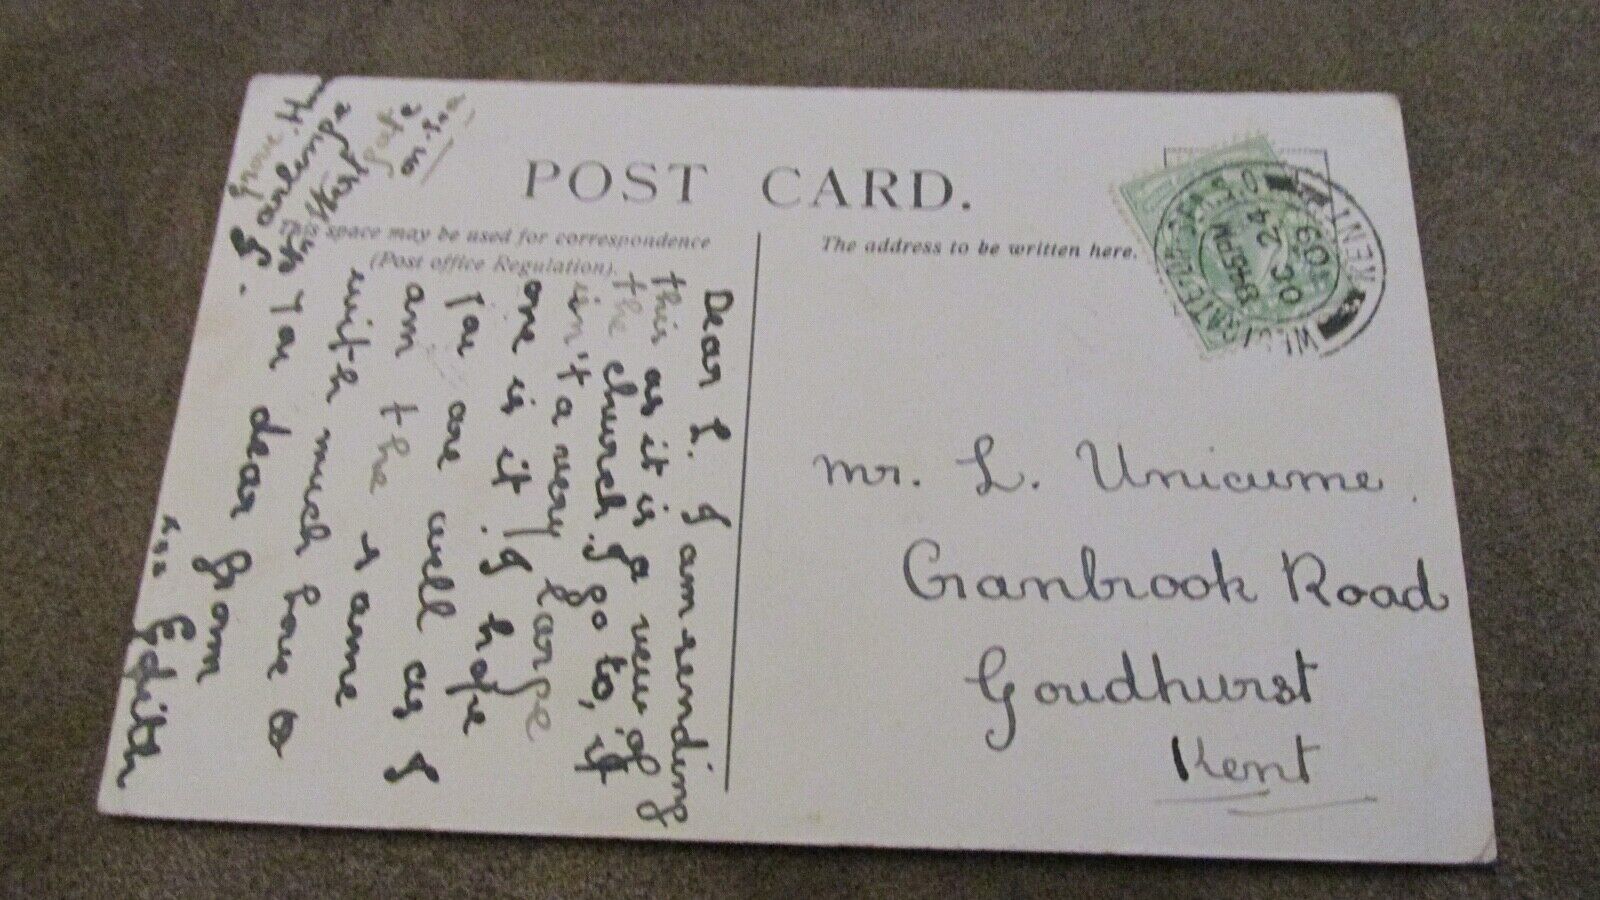 POST CARD.
This space may be used for correspondence
(Post office Regulation).
The address to be written here.
Dear L. I am sending
this as it is a view of
the church I go to, it
isn't a very large
one is it. I hope
You are well as I
am the same
with much love to
You dear from
xxx Edith
Mr. L. Unicume.
Cranbrook Road
Goudhurst
Kent
WESTGATE
KENT
8.45PM
OC 24
09